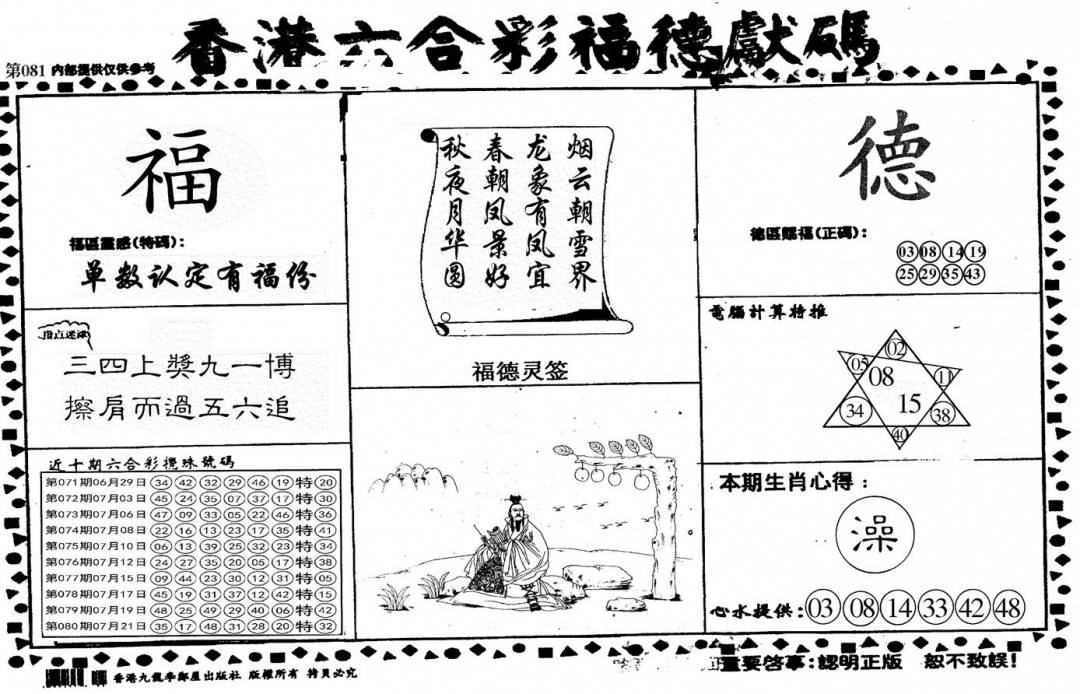 香港六合彩福德獻碼
第081 内部提供仅供参考
福
福區靈感(特碼):
单数认定有福份
指点迷津
三四上獎九一博
擦肩而過五六追
近十期六合彩攪珠號碼
第071期06月29日 34 42 32 29 46 19 特 20
第072期07月03日 45 24 35 07 37 17 特 30
第073期07月06日 47 09 33 05 22 46 特 36
第074期07月08日 22 16 13 23 17 35 特 41
第075期07月10日 06 13 39 25 32 23 特 34
第076期07月12日 24 27 35 20 05 17 特 38
第077期07月15日 09 44 23 30 12 31 特 05
第078期07月17日 45 19 31 37 12 42 特 15
第079期07月19日 48 25 49 29 40 06 特 42
第080期07月21日 35 17 48 31 28 20 特 32
烟云朝雪界
龙象有凤宜
春朝凤景好
秋夜月华圆
福德灵签
德
德區賜福(正碼):
03 08 14 19
25 29 35 43
電腦計算特推
02
05 08 11
34 15 38
40
本期生肖心得:
澡
心水提供: 03 08 14 33 42 48
香港九龍李鄭屋出版社 版權所有 拷貝必究
重要啓事:認明正版 恕不致誤!